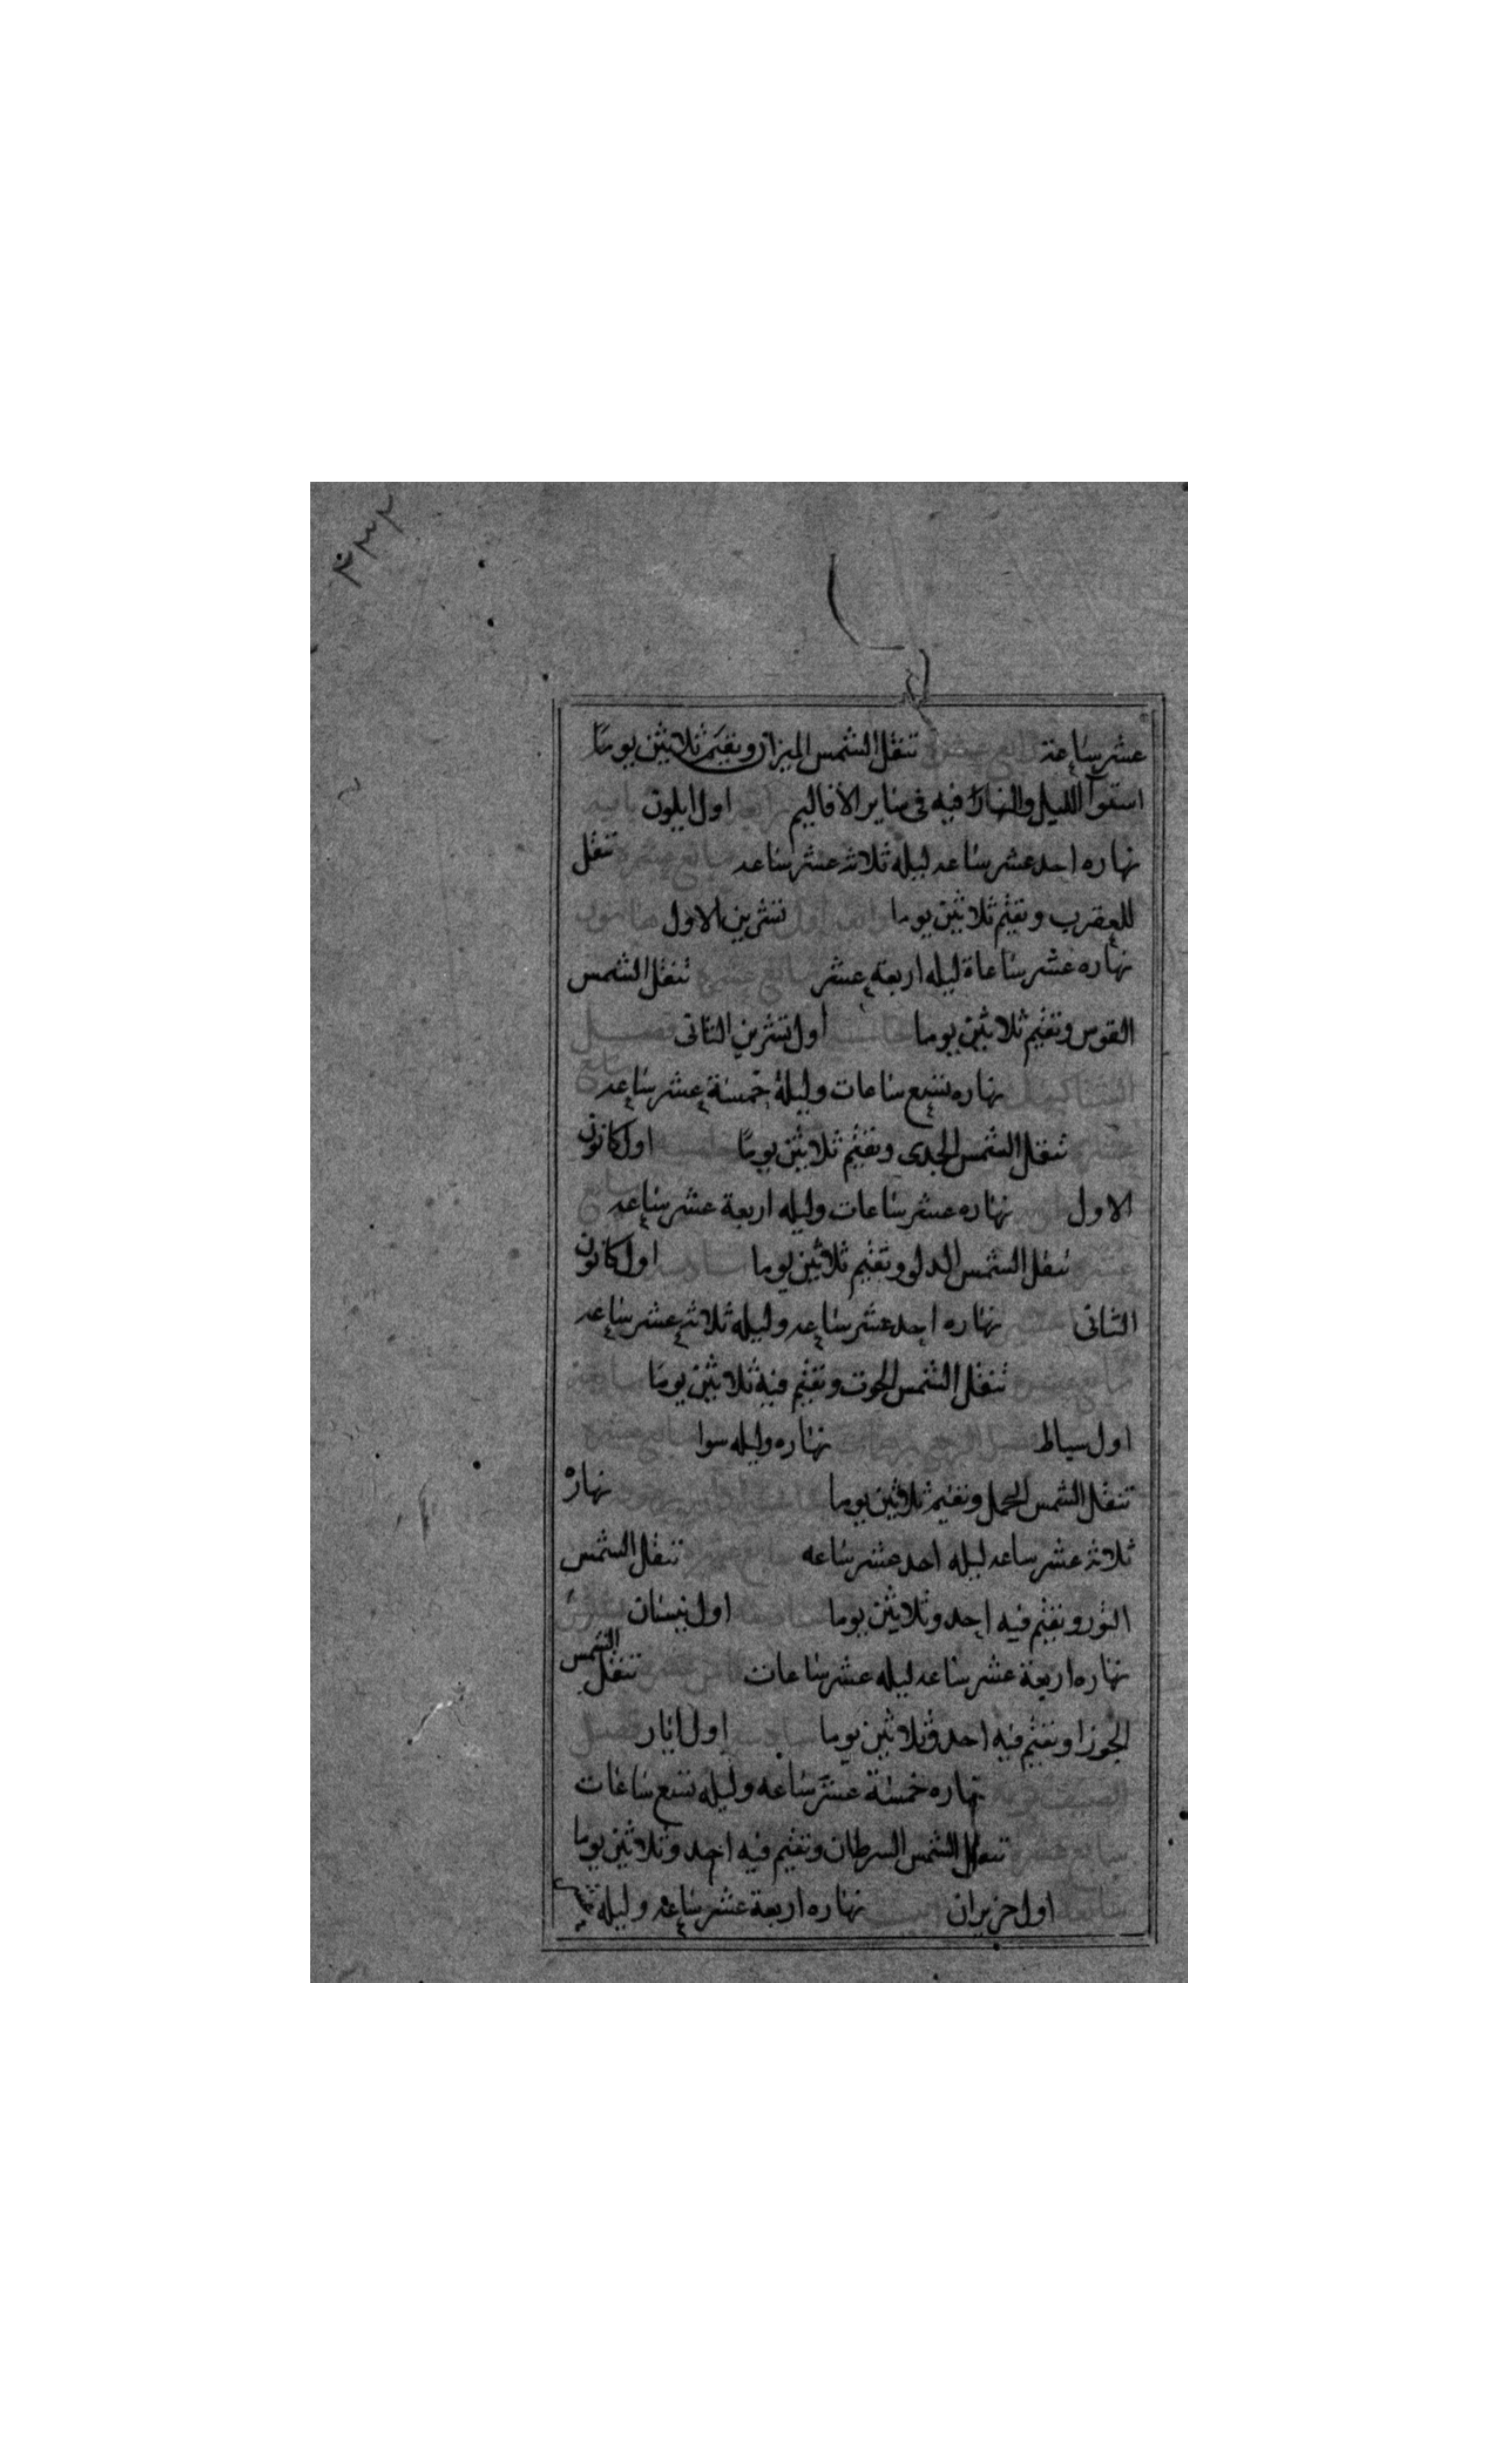 عشر ساعة تنقل الشمس الميزان وتقيم ثلاثين يوما
استوآ الليل والنهار فيه في ساير الأقاليم اول ايلون
نهاره احد عشر ساعه ليله ثلاثه عشر ساعه تنقل
للعقرب وتقيم ثلاثين يوما تشرين الاول
نهاره عشر ساعاة ليله اربعة عشر تنقل الشمس
القوس وتقيم ثلاثين يوما اول تشرين الثاني
نهاره تسع ساعات وليلة خمسة عشر ساعه
تنقل الشمس الجدى وتقيم ثلاثين يوما اول كانون
الاول نهاره عشر ساعات وليله اربعة عشر ساعه
تنقل الشمس الدلو وتقيم ثلاثين يوما اول كانون
الثانى نهاره احد عشر ساعه وليله ثلاثه عشر ساعه
تنقل الشمس الحوت وتقيم فيه ثلاثين يوما
اول سباط نهاره وليله سوا
تنقل الشمس الحمل وتقيم ثلاثين يوما نهاره
ثلاثه عشر ساعه ليله احد عشر ساعه تنقل الشمس
الثور وتقيم فيه احد وثلاثين يوما اول نيسان
نهاره اربعة عشر ساعه ليله عشر ساعات تنقل الشمس
الجوزا وتقيم فيه احد وثلاثين يوما اول ايار
نهاره خمسة عشر ساعه وليله تسع ساعات
تنقل الشمس السرطان وتقيم فيه احد وثلاثين يوما
اول حزيران نهاره اربعة عشر ساعه وليله